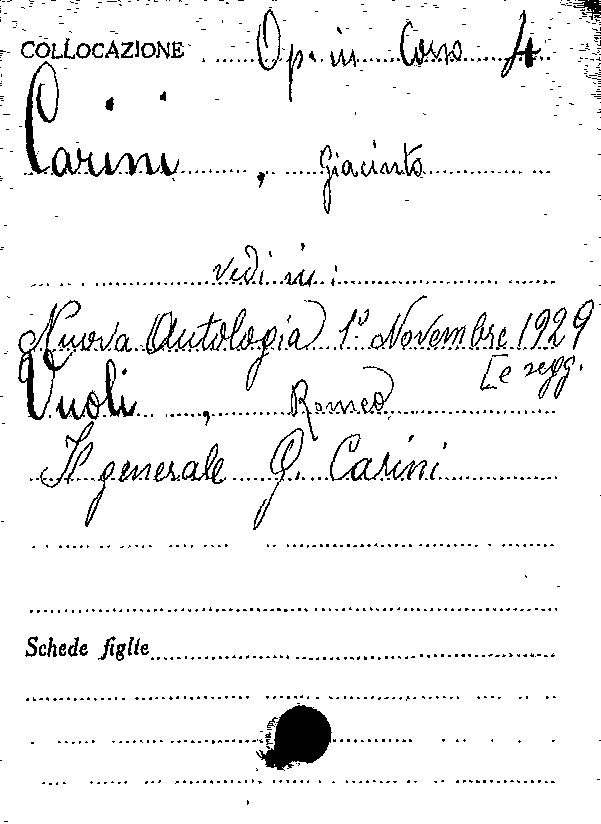 COLLOCAZIONE Op. in Corso 4
Carini, Giacinto
vedi in:
Nuova Antologia 1º Novembre 1929
[e segg.
Vuoli, Romeo
Il generale G. Carini
Schede figlie